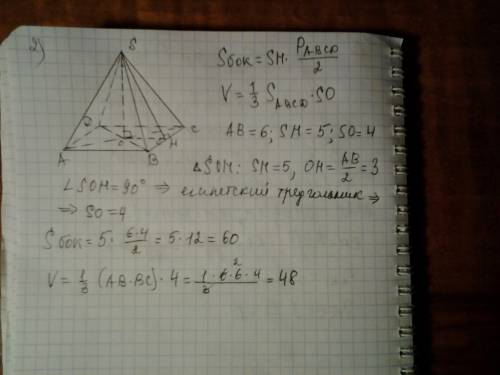 2)
S
Sбок = SH · P_ABCD / 2
V = 1/3 S_ABCD · SO
D
C
O
H
A
B
AB = 6; SH = 5; SO = 4
△SOH: SH = 5, OH = AB/2 = 3
∠SOH = 90° ⇒ египетский треугольник ⇒
⇒ SO = 4
Sбок = 5 · 6·4/2 = 5 · 12 = 60
V = 1/3 (AB · BC) · 4 = 1·6·6·4/3 = 48
2